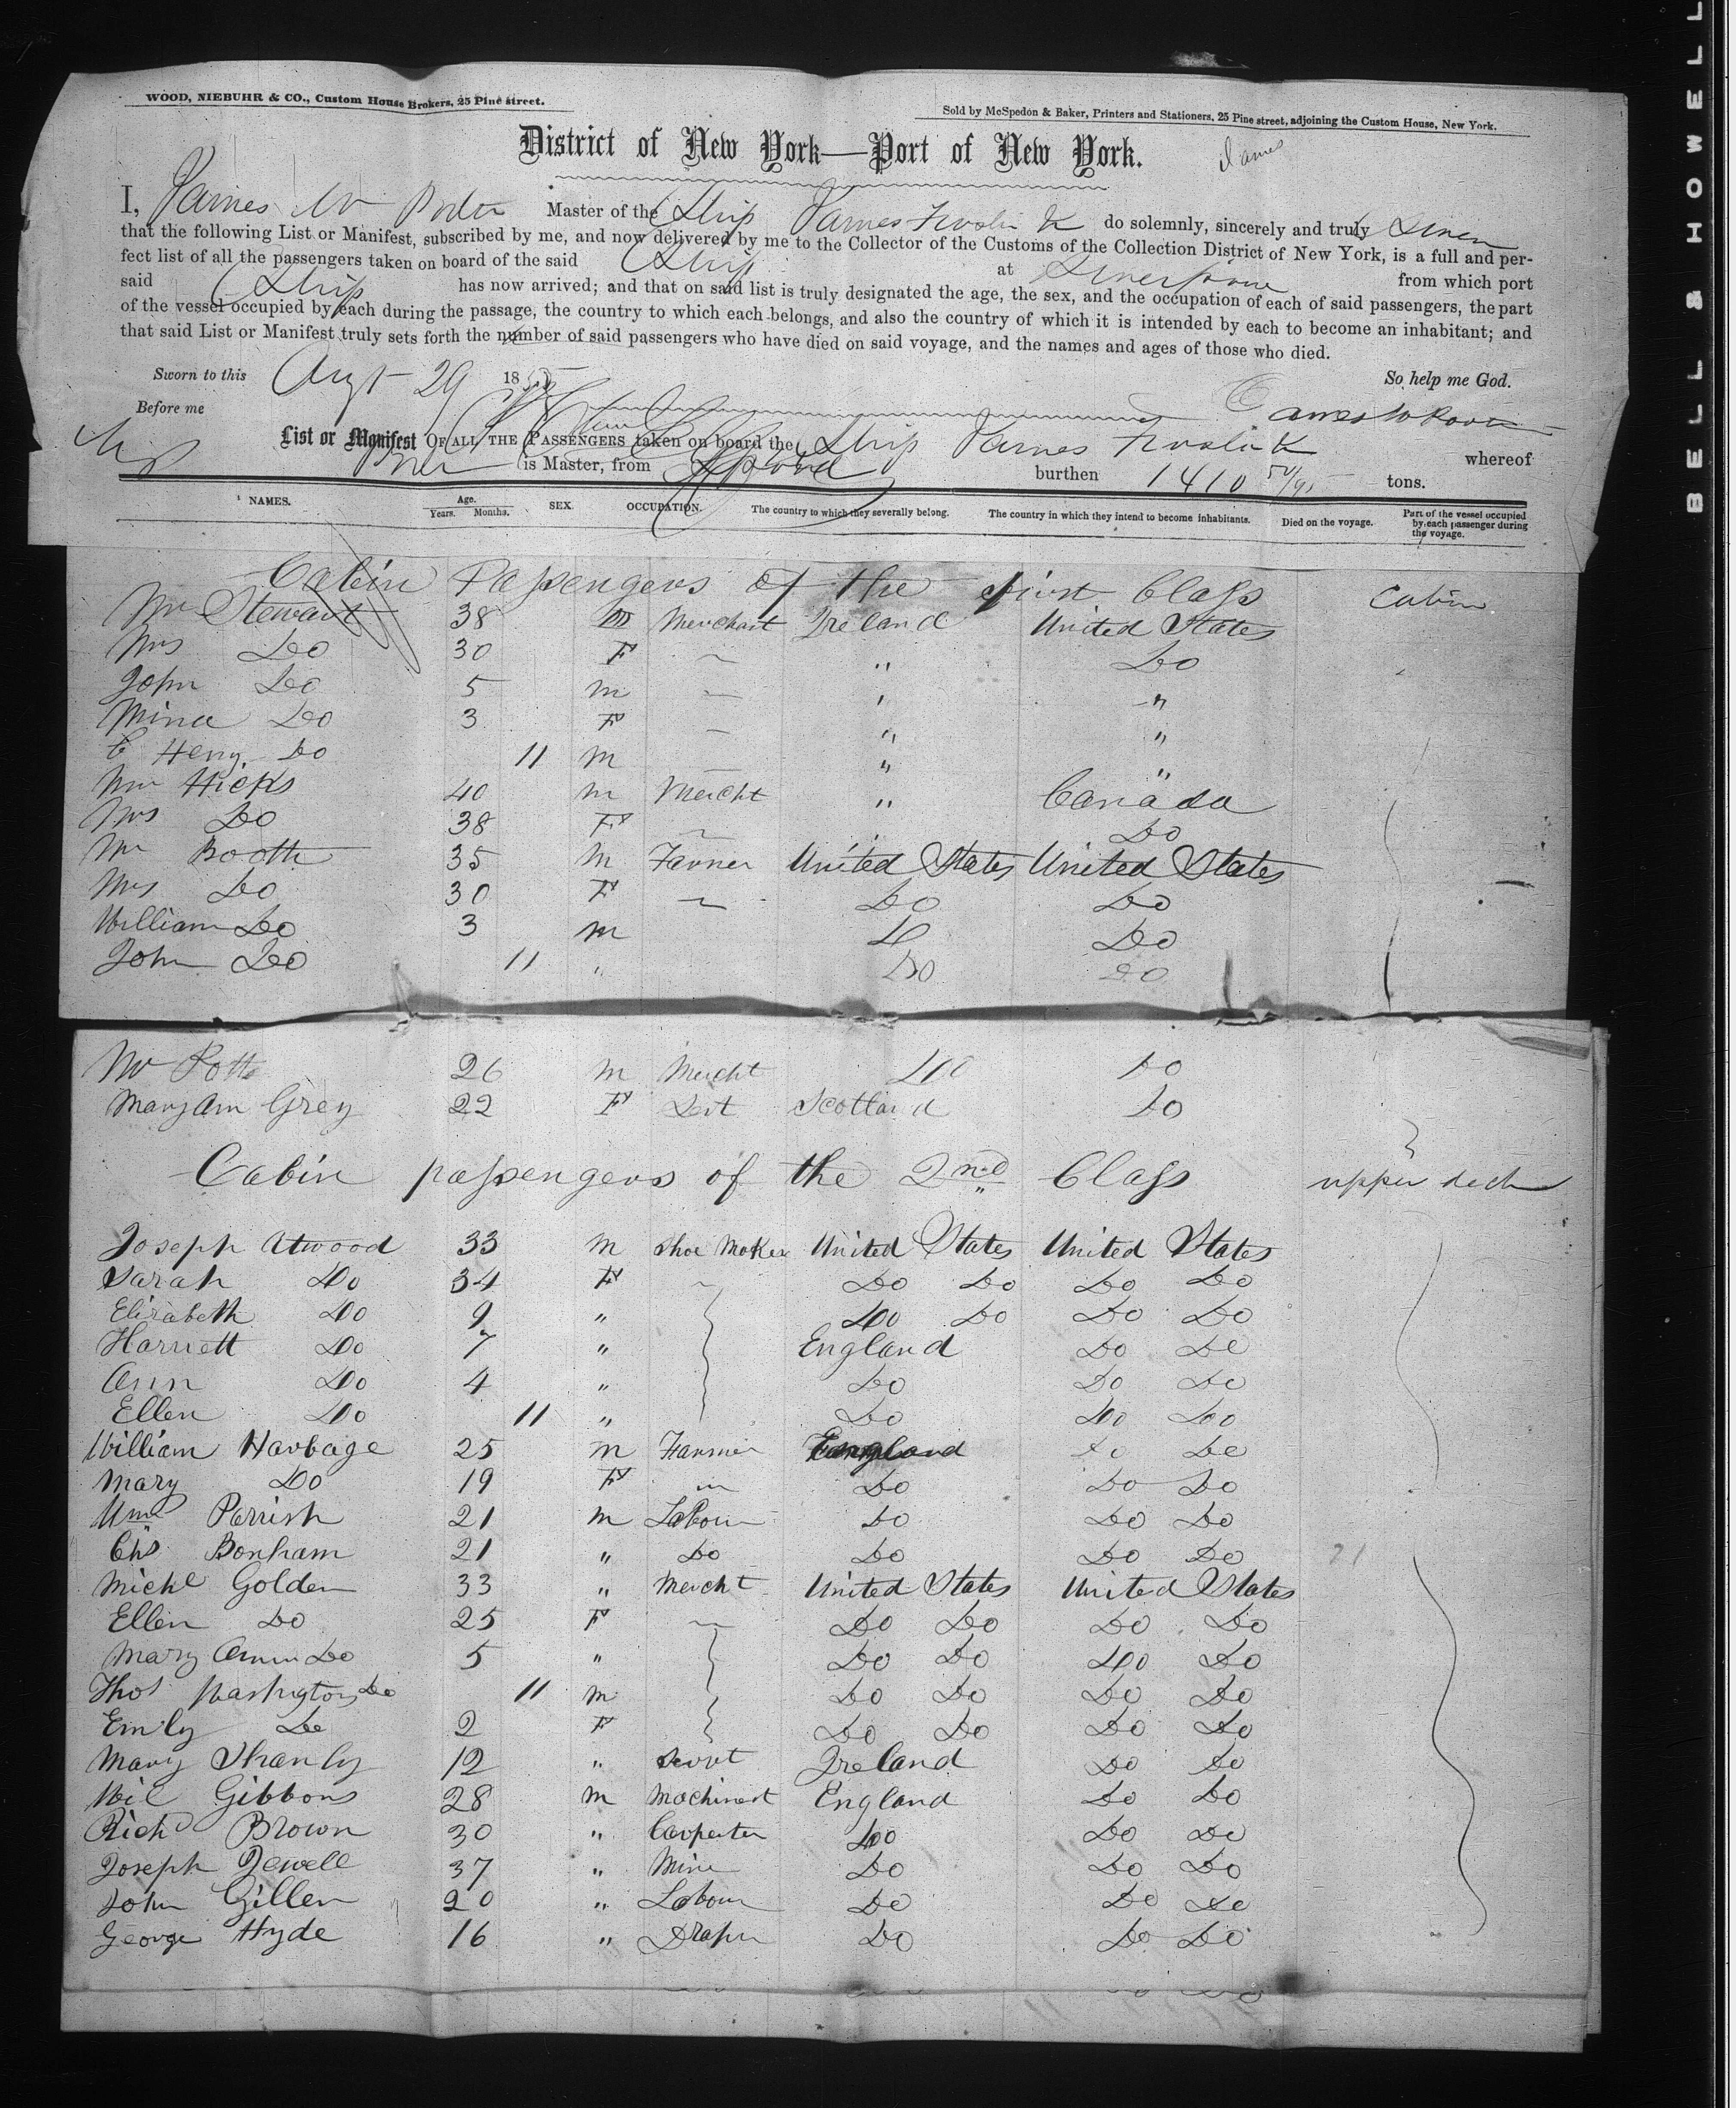 WOOD, NIEBUHR & CO., Custom House Brokers, 25 Pine street.
Sold by McSpedon & Baker, Printers and Stationers, 25 Pine street, adjoining the Custom House, New York.
District of New York—Port of New York.
James
I, James W Porter Master of the Ship James Foster do solemnly, sincerely and truly Swear
that the following List or Manifest, subscribed by me, and now delivered by me to the Collector of the Customs of the Collection District of New York, is a full and per-
fect list of all the passengers taken on board of the said Ship at Liverpool from which port
said Ship has now arrived; and that on said list is truly designated the age, the sex, and the occupation of each of said passengers, the part
of the vessel occupied by each during the passage, the country to which each belongs, and also the country of which it is intended by each to become an inhabitant; and
that said List or Manifest truly sets forth the number of said passengers who have died on said voyage, and the names and ages of those who died.
Sworn to this Augt 29 1855 So help me God.
Before me
List or Manifest OF ALL THE PASSENGERS taken on board the Ship James whereof
is Master, from Lpool burthen 1410 tons.
NAMES. Age. Years. Months. SEX. OCCUPATION. The country to which they severally belong. The country in which they intend to become inhabitants. Died on the voyage. Part of the vessel occupied by each passenger during the voyage.
Cabin Passengers of the first Class Cabin
Mr Stewart 38 M Merchant Ireland United States
Mrs Do 30 F ~ " Do
John Do 5 m — " "
Mina Do 3 F — " "
C Heny Do 11 m — " "
Mr Hicks 40 m Mercht " Canada
Mrs Do 38 F ~ Do
Mr Booth 35 M Farmer United States United States
Mrs Do 30 F ~ Do Do
William Do 3 m Do Do
John Do 11 " Do Do
Mr Potts 26 m Mercht Do Do
Mary Ann Grey 22 F Servt Scotland Do
Cabin passengers of the 2nd Class upper deck
Joseph Atwood 33 m Shoe Maker United States United States
Sarah Do 34 F ~ Do Do Do Do
Elizabeth Do 9 " Do Do Do Do
Harriett Do 7 " England Do Do
Ann Do 4 " Do Do Do
Ellen Do 11 " Do Do Do
William Harbage 25 m Farmer England Do Do
Mary Do 19 F Do Do Do
Wm Parrish 21 m Labour Do Do Do
Chs Bonham 21 " Do Do Do Do 21
Michl Golden 33 " Mercht United States United States
Ellen Do 25 F ~ Do Do Do Do
Mary Ann Do 5 " Do Do Do Do
Thos Washington Do 11 m Do Do Do Do
Emily Do 2 F Do Do Do Do
Mary Shanly 12 " Servt Ireland Do Do
Wil Gibbons 28 m Machinest England Do Do
Richd Brown 30 " Carpenter Do Do Do
Joseph Jewell 37 " Miner Do Do Do
John Gillen 20 " Labour Do Do Do
George Hyde 16 " Draper Do Do Do
BELL & HOWELL